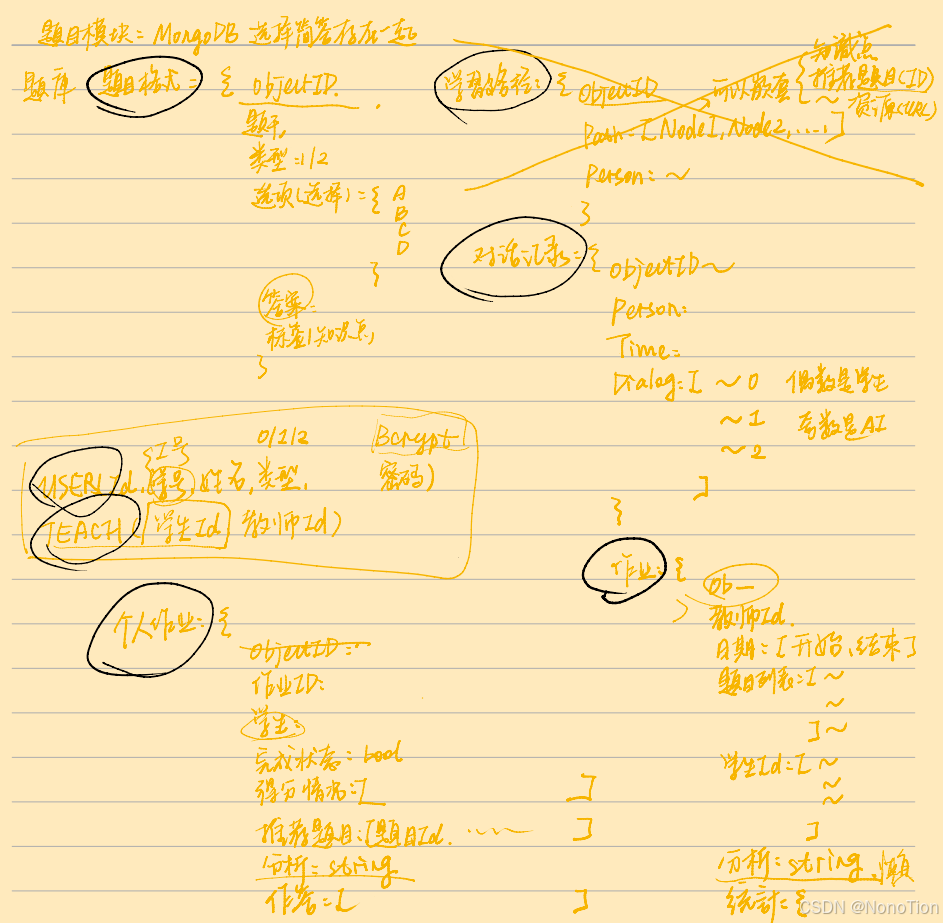 题目模块: MongoDB 选择简答存在一起
题库 题目格式 = { ObjectID.
题干,
类型 =1/2
选项(选择) = { A
B
C
D
}
答案:
标签/知识点,
}
学习路径: { ObjectID
可以嵌套 { 知识点
推荐题目(ID)
~ 资源(URL)
Path=[Node1, Node2, ....]
Person: ~
}
对话记录 = { ObjectID ~
Person:
Time=
Dialog=[ ~ 0 偶数是学生
~ 1 奇数是AI
~ 2
]
}
{工号 0/1/2 Bcrypt
USER( Id, 学号, 姓名, 类型, 密码)
TEACH( 学生Id 教师Id )
个人作业: {
ObjectID:
作业ID:
学生:
完成状态 = bool
得分情况=[ ]
推荐题目: [题目Id. ...... ]
分析 = string
作答 = [ ]
作业: { Ob—
教师Id.
日期 = [开始, 结束]
题目列表=[ ~
~
] ~
学生Id=[ ~
~
~
]
分析 = string, 懒
统计= {
CSDN @NonoTion